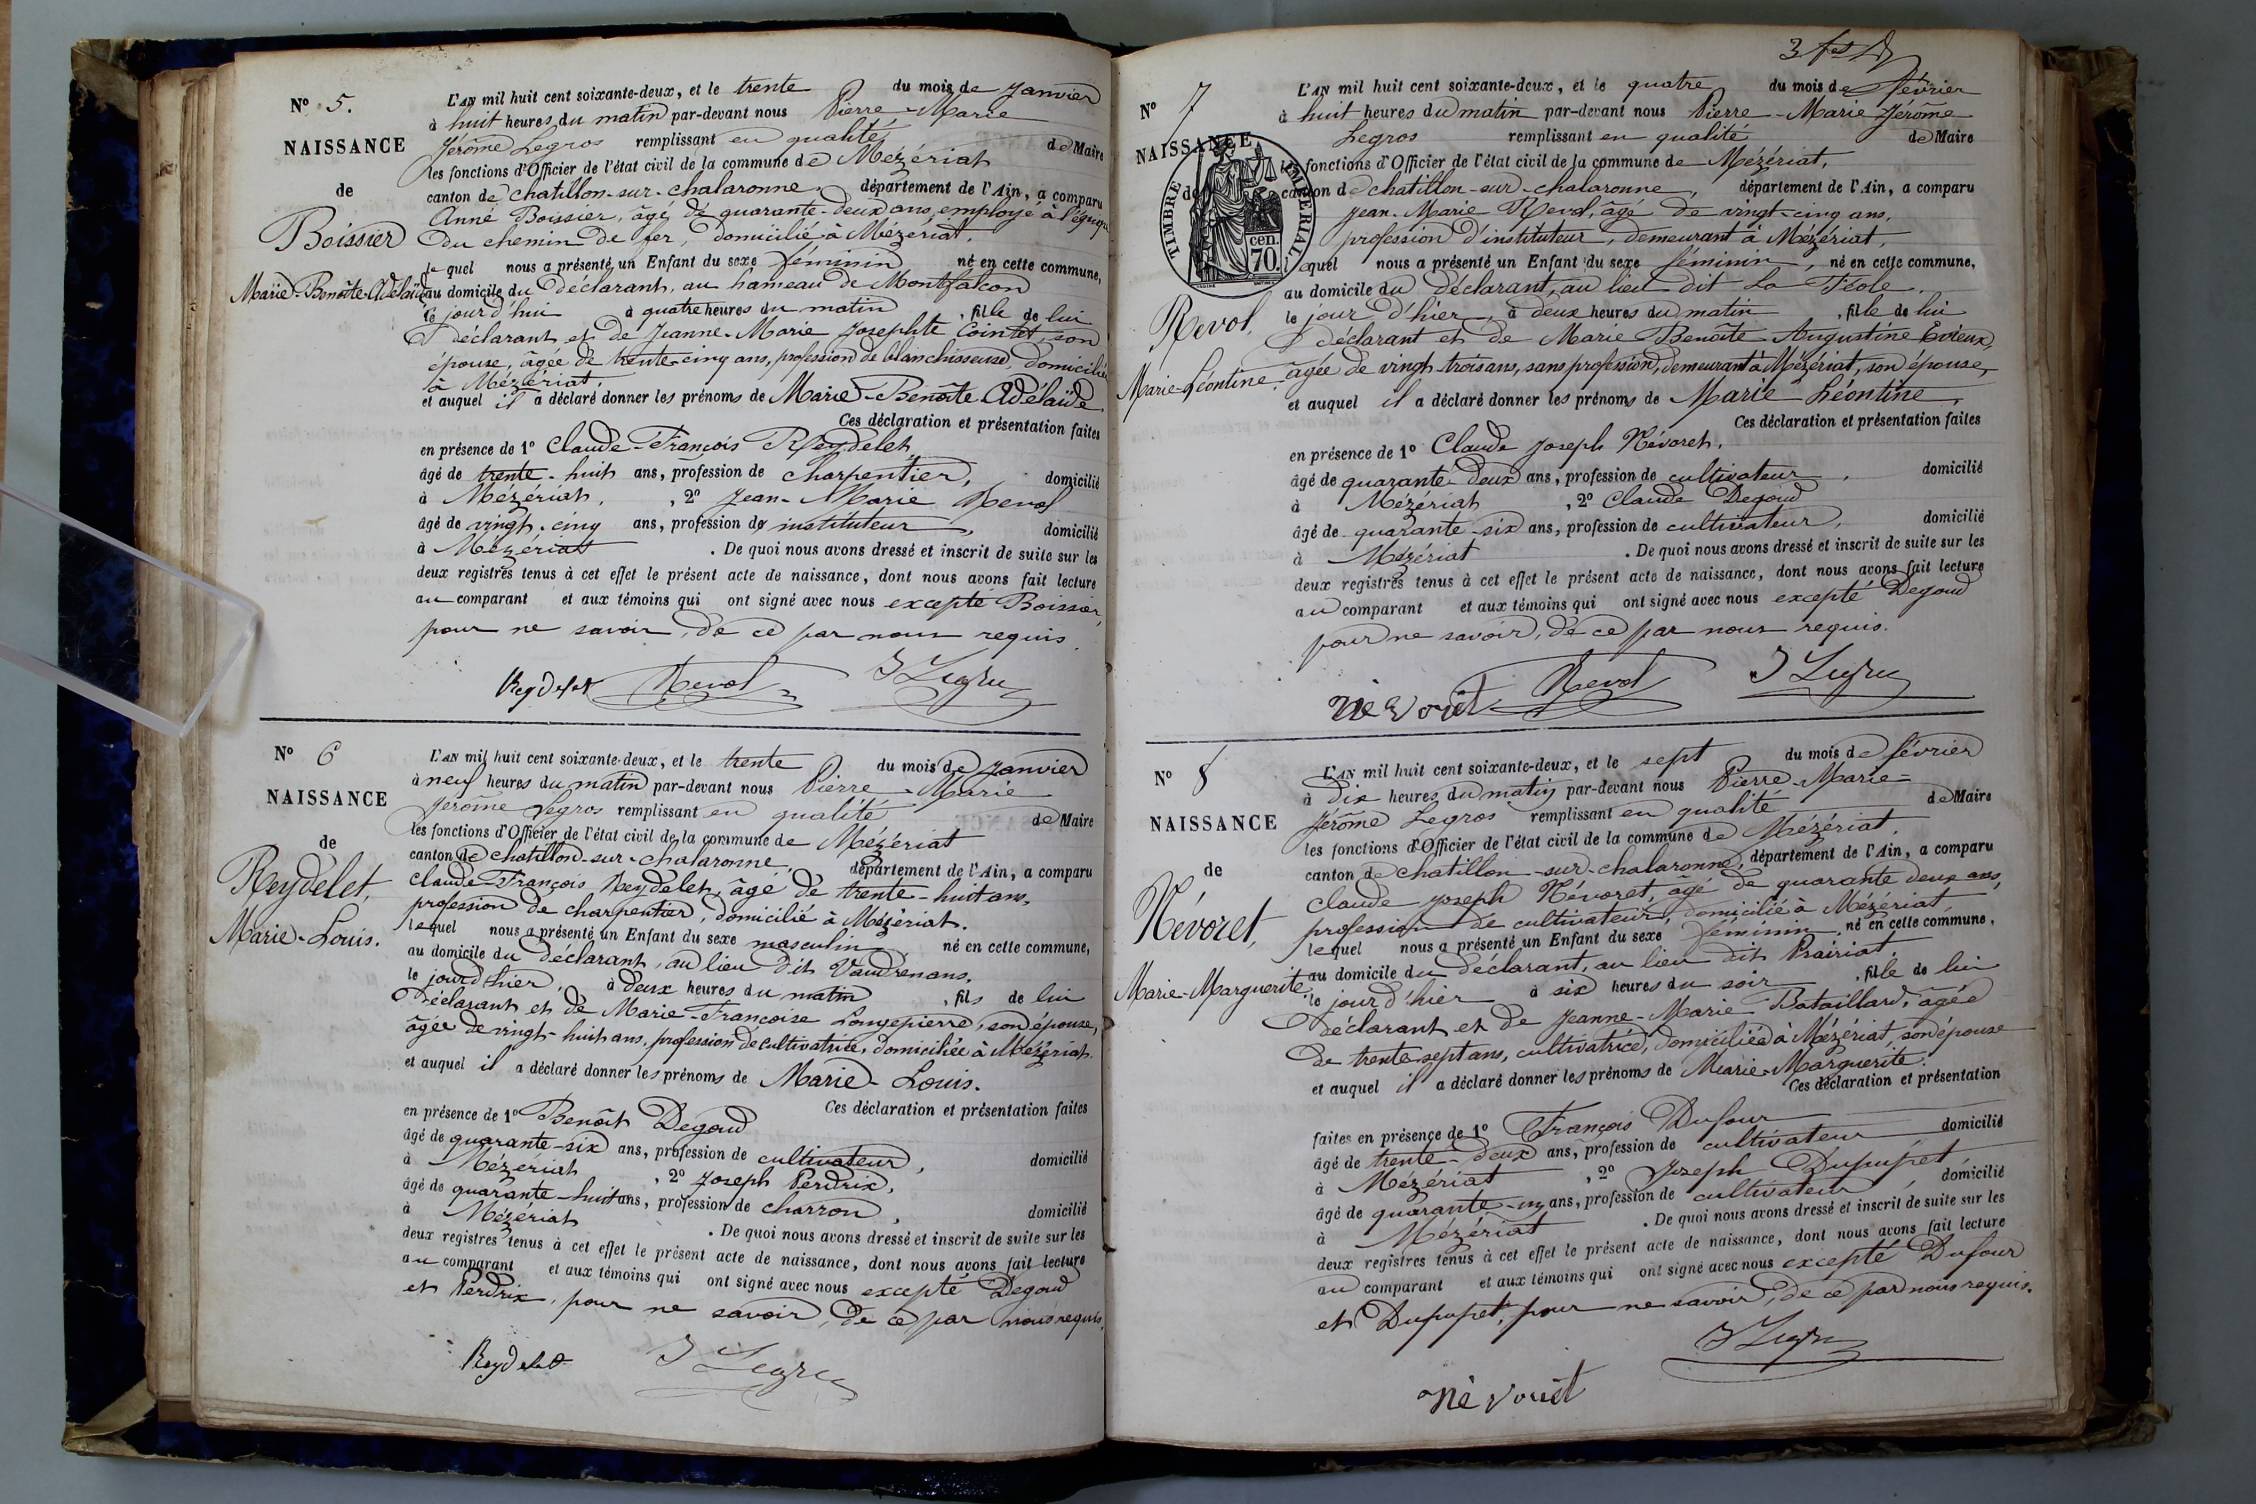 N° 5.
NAISSANCE
de
Boissier
Marie-Benoîte-Adélaïde
L'AN mil huit cent soixante-deux, et le trente du mois de Janvier
à huit heures du matin par-devant nous Pierre-Marie
Jérôme Legros remplissant en qualité de Maire
les fonctions d'Officier de l'état civil de la commune de Mézériat
canton de chatillon-sur-chalaronne, département de l'Ain, a comparu
Anné Boissier, âgé de quarante-deux ans, employé à l'équipe
du chemin de fer, domicilié à Mézériat,
lequel nous a présenté un Enfant du sexe féminin né en cette commune,
au domicile du déclarant, au hameau de Montfalcon
le jourd'hui à quatre heures du matin, fille de lui
déclarant et de Jeanne-Marie Josephte Cointet, son
épouse, âgée de trente-cinq ans, profession de blanchisseuse, domiciliée
à Mézériat,
et auquel il a déclaré donner les prénoms de Marie-Benoîte Adélaïde
Ces déclaration et présentation faites
en présence de 1° Claude-François Reydelet,
âgé de trente-huit ans, profession de charpentier, domicilié
à Mézériat, , 2° Jean-Marie Revol
âgé de vingt-cinq ans, profession de instituteur, domicilié
à Mézériat . De quoi nous avons dressé et inscrit de suite sur les
deux registres tenus à cet effet le présent acte de naissance, dont nous avons fait lecture
au comparant et aux témoins qui ont signé avec nous excepté Boissier,
pour ne savoir, de ce par nous requis.
Reydelet Revol J Legros
N° 6
NAISSANCE
de
Reydelet,
Marie-Louis.
L'AN mil huit cent soixante-deux, et le trente du mois de Janvier
à neuf heures du matin par-devant nous Pierre-Marie
Jérôme Legros remplissant en qualité de Maire
les fonctions d'Officier de l'état civil de la commune de Mézériat
canton de chatillon-sur-chalaronne, département de l'Ain, a comparu
Claude-François Reydelet, âgé de trente-huit ans,
profession de charpentier, domicilié à Mézériat.
lequel nous a présenté un Enfant du sexe masculin né en cette commune,
au domicile du déclarant, au lieu dit Vaudrenans,
le jour d'hier, à deux heures du matin, fils de lui
déclarant et de Marie-Françoise Longepierre, son épouse,
âgée de vingt-huit ans, profession de cultivatrice, domiciliée à Mézériat.
et auquel il a déclaré donner les prénoms de Marie-Louis.
Ces déclaration et présentation faites
en présence de 1° Benoît Degoud
âgé de quarante-six ans, profession de cultivateur, domicilié
à Mézériat , 2° Joseph Perdrix,
âgé de quarante-huit ans, profession de charron, domicilié
à Mézériat . De quoi nous avons dressé et inscrit de suite sur les
deux registres tenus à cet effet le présent acte de naissance, dont nous avons fait lecture
au comparant et aux témoins qui ont signé avec nous excepté Degoud
et Perdrix, pour ne savoir, de ce par nous requis.
Reydelet J Legros
N° 7
NAISSANCE
de
TIMBRE IMPÉRIAL
70 cen.
Revol,
Marie-Léontine.
L'AN mil huit cent soixante-deux, et le quatre du mois de février
à huit heures du matin par-devant nous Pierre-Marie Jérôme
Legros remplissant en qualité de Maire
les fonctions d'Officier de l'état civil de la commune de Mézériat,
canton de chatillon-sur-chalaronne, département de l'Ain, a comparu
Jean-Marie Revol, âgé de vingt-cinq ans,
profession d'instituteur, demeurant à Mézériat,
lequel nous a présenté un Enfant du sexe féminin, né en cette commune,
au domicile du déclarant, au lieu dit La
le jour d'hier, à deux heures du matin, fille de lui
déclarant et de Marie Benoîte Augustine
âgée de vingt-trois ans, sans profession, demeurant à Mézériat, son épouse,
et auquel il a déclaré donner les prénoms de Marie Léontine,
Ces déclaration et présentation faites
en présence de 1° Claude Joseph Névoret,
âgé de quarante-deux ans, profession de cultivateur, domicilié
à Mézériat , 2° Claude Degoud
âgé de quarante-six ans, profession de cultivateur, domicilié
à Mézériat . De quoi nous avons dressé et inscrit de suite sur les
deux registres tenus à cet effet le présent acte de naissance, dont nous avons fait lecture
au comparant et aux témoins qui ont signé avec nous excepté Degoud
pour ne savoir, de ce par nous requis.
Névoret Revol J Legros
N° 8
NAISSANCE
de
Névoret,
Marie-Marguerite.
L'AN mil huit cent soixante-deux, et le sept du mois de février
à dix heures du matin par-devant nous Pierre-Marie-
Jérôme Legros remplissant en qualité de Maire
les fonctions d'Officier de l'état civil de la commune de Mézériat,
canton de chatillon-sur-chalaronne, département de l'Ain, a comparu
Claude Joseph Névoret, âgé de quarante deux ans,
profession de cultivateur, domicilié à Mézériat,
lequel nous a présenté un Enfant du sexe féminin, né en cette commune,
au domicile du déclarant, au lieu dit Prairiat,
le jour d'hier à six heures du soir, fille de lui
déclarant et de Jeanne-Marie Bataillard, âgée
de trente-sept ans, cultivatrice, domiciliée à Mézériat, son épouse
et auquel il a déclaré donner les prénoms de Marie-Marguerite.
Ces déclaration et présentation
faites en présence de 1° François Dufour
âgé de trente-deux ans, profession de cultivateur domicilié
à Mézériat , 2° Joseph Dupupet
âgé de quarante-un ans, profession de cultivateur, domicilié
à Mézériat . De quoi nous avons dressé et inscrit de suite sur les
deux registres tenus à cet effet le présent acte de naissance, dont nous avons fait lecture
au comparant et aux témoins qui ont signé avec nous excepté Dufour
et Dupupet, pour ne savoir, de ce par nous requis.
J Legros
Névoret